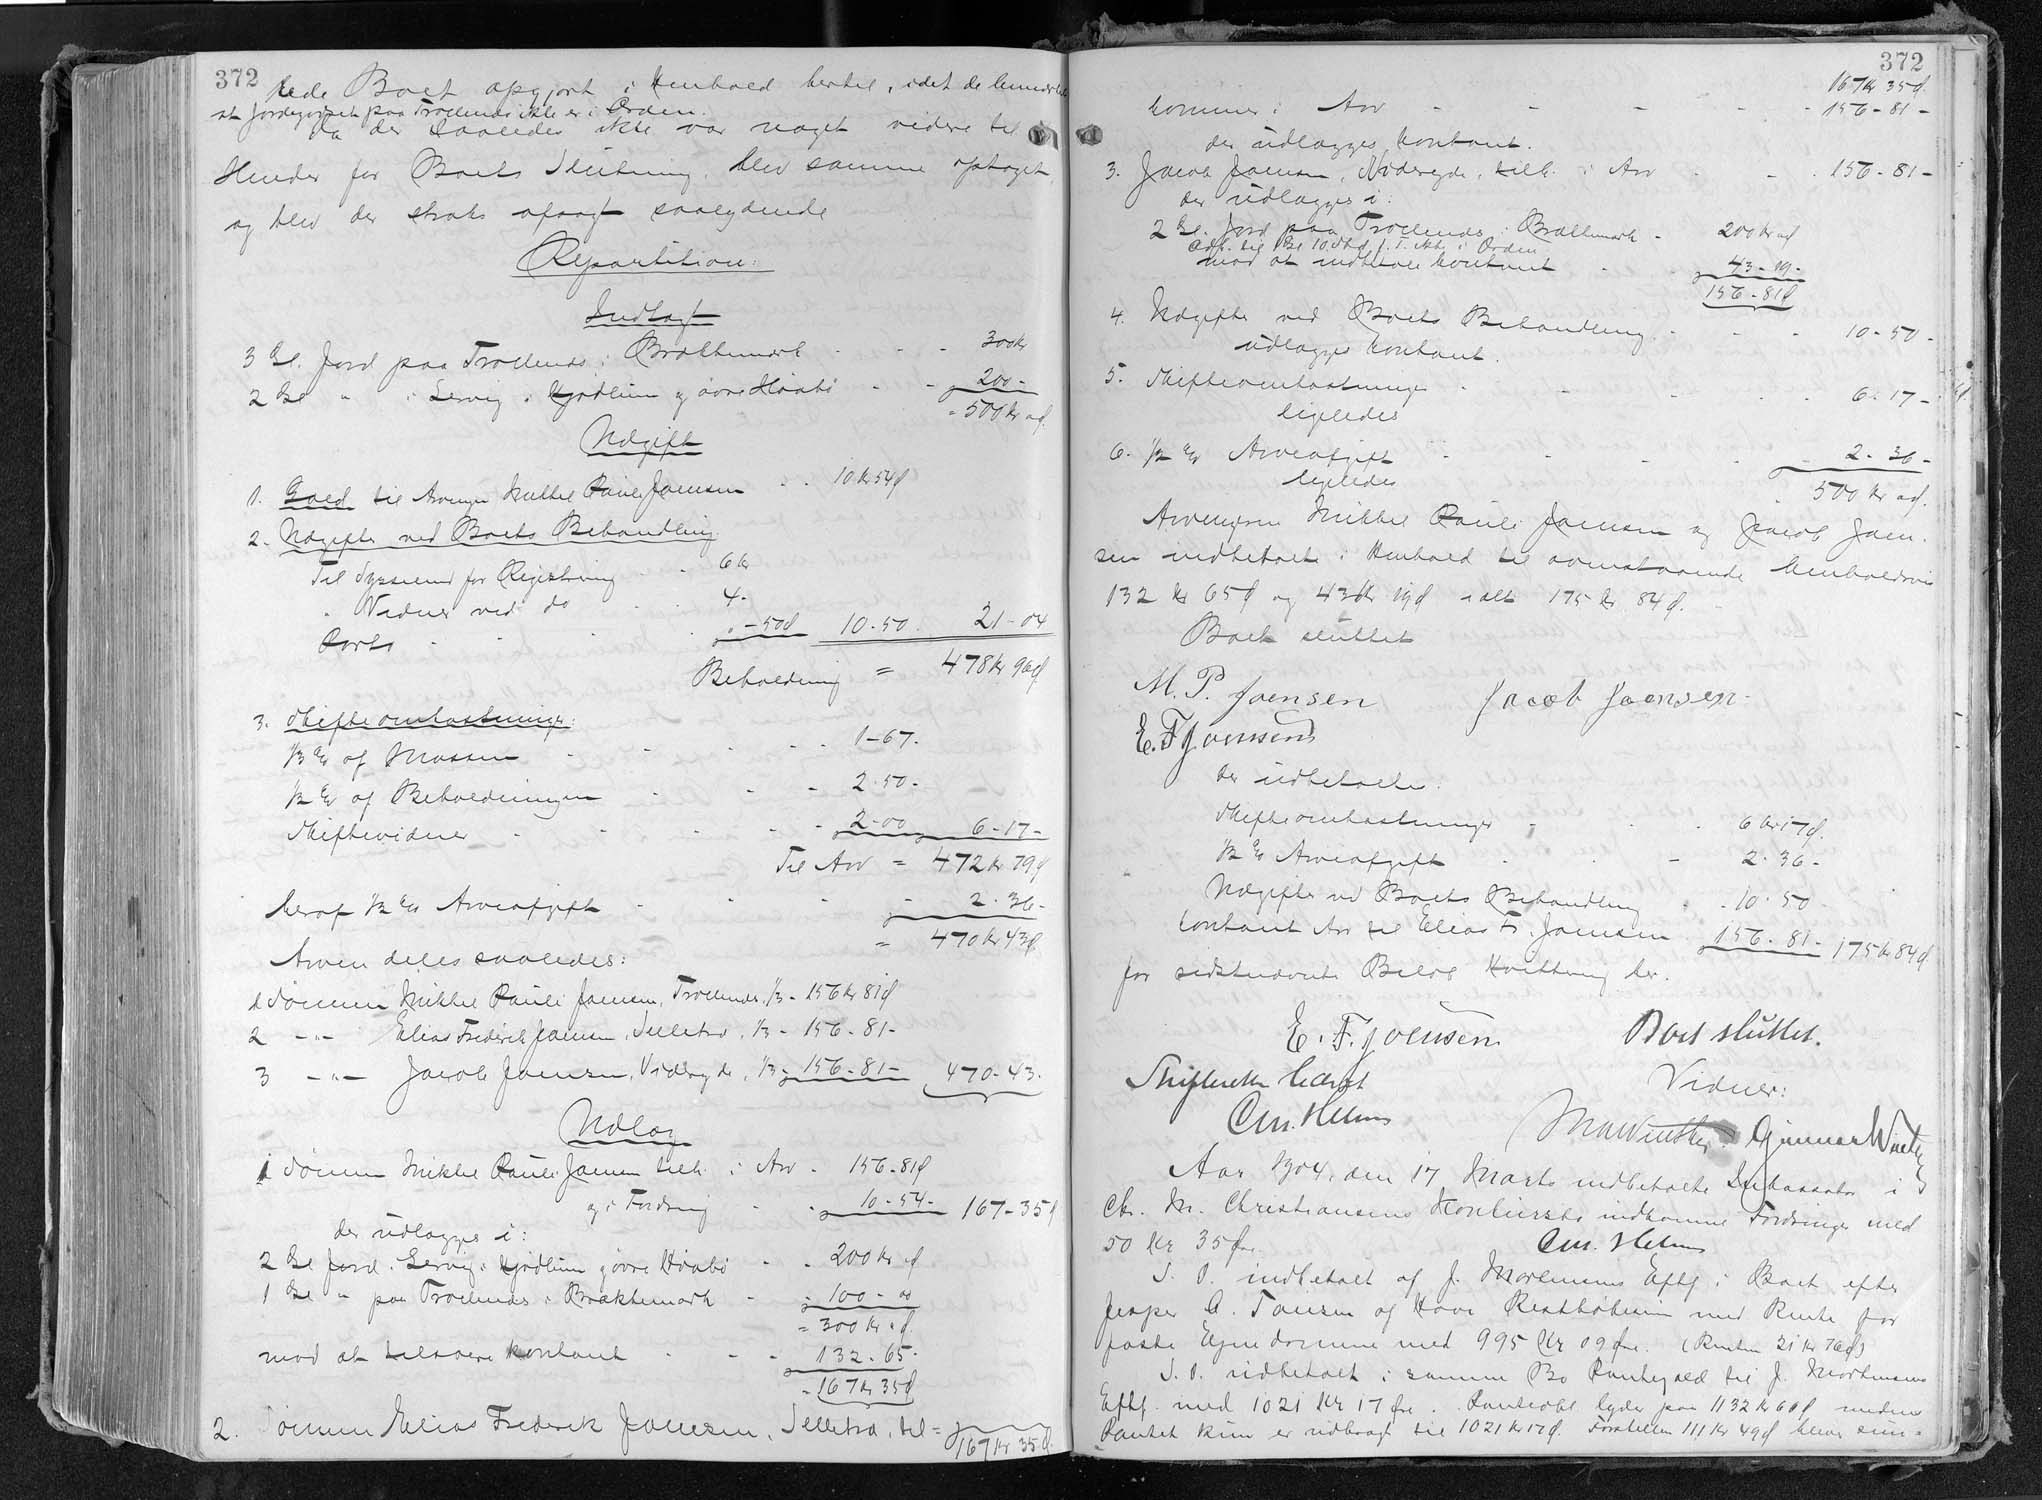 372
Boet opgjort i Henhold hertil, idet de bemærkede
at Jordegodset paa Trollenæs ikke er i Orden.
Da der saaledes ikke var noget videre til
Hinder for Boets Slutning, blev samme optaget,
og blev der straks afsagt saalydende
Repartition:
Indtægt
3 Gl. Jord paa Trollenæs i Brattemark - - - 300 Kr
2 Gl " i Gervig i Gjødlum og øvre - - 200 -
= 500 Kr ad.
Udgift
1. Gæld til Arvingen Mikkel Pauli Joensen - - 10 Kr 54 Ø
2. Udgifter ved Boets Behandling
Til Sysselmd for Registrering - - 6 Kr
" Vidner ved do - - 4 -
Porto - - - " - 50 Ø 10 - 50 - 21 - 04
Beholdning = 478 Kr 96 Ø
3. Skifteomkostninger:
½ % af Massen - - - - 1 - 67 -
½ % af Beholdningen - - - 2 - 50 -
Skiftevidner - - - - - 2 - 00 6 - 17 -
Til Arv = 472 Kr 79 Ø
heraf ½ % Arveafgift - - - - 2 - 36 -
= 470 Kr 43 Ø
Arven deles saaledes:
1 Sønnen Mikkel Pauli Joensen, Trollenæs, ⅓ - 156 Kr 81 Ø
2 - " - Elias Frederik Joensen, Selletræ, ⅓ - 156 - 81 -
3 - " - Jacob Joensen, Viderejde, ⅓ - 156 - 81 - 470 - 43 -
Udlæg
1 Sønnen Mikkel Pauli Joensen tilk. i Arv - 156 - 81 Ø
og i Fordring - - 10 - 54 - 167 - 35 Ø
der udlægges i:
2 Gl Jord i Gervig i Gjødlum og øvre - - 200 Kr Ø
1 Gl " paa Trollenæs i Brattemark - - 100 - "
= 300 Kr "Ø
mod at tilsvare kontant - - - 132 - 65 -
= 167 Kr 35 Ø
2. Sønnen Elias Frederik Joensen, Selletræ, til =
167 Kr 35 Ø
372
167 Kr 35 Ø
kommer i Arv - - - - - 156 - 81 -
der udlægges kontant.
3. Jacob Joensen, Viderejde, tilk. i Arv - - - 156 - 81 -
der udlægges i:
2 Gl. Jord paa Trollenæs i Brattemark - 200 Kr "Ø
ikke i Orden
mod at indbetale kontant - - 43 - 19 -
156 - 81 Ø
4. Udgifter ved Boets Behandling - - - 10 - 50 -
udlægges kontant.
5. Skifteomkostninger - - - - 6 - 17 -
ligeledes
6. ½ % Arveafgift - - - - 2 - 36 -
ligeledes
500 Kr "Ø
Arvingerne Mikkel Pauli Joensen og Jacob Joen-
sen indbetalte i Henhold til ovenstaaende henholdsvis
132 Kr 65 Ø og 43 Kr 19 Ø ialt 175 Kr 84 Ø.
Boet sluttet
M. P. Joensen Jacob Joensen.
E. F. Joensen
Der udbetaltes:
Skifteomkostninger - - - 6 Kr 17 Ø.
½ % Arveafgift - - - 2 - 36 -
Udgifter ved Boets Behandling - - 10 - 50 -
kontant Arv til Elias Fr. Joensen 156 - 81 - 175 Kr 84 Ø
for sidstnævnte Beløb Kvittering her.
E. F. Joensen Boet sluttet.
Skifteretten hævet Vidner:
Chr. Helms
M. A. Winther Gunnar Winther
Aar 1904, den 17 Marts indbetalte Inkassator i
Chr. M. Christiansens Konkursbo indkomne Fordringer med
50 Kr 35 Øre.
Chr. Helms
S. D. indbetalt af J. Mortensens Eftf. i Boet efter
Jesper A. Joensen af Hove Restkøbesum med Rente for
faste Ejendomme med 995 Kr 09 Øre. (Renten 21 Kr 76 Ø)
S. D. udbetalt i samme Bo Pantegæld til J. Mortensens
Eftf. med 1021 Kr 17 Øre. Panteobl. lyder paa 1132 Kr 66 Ø medens
Pantet kun er udbragt til 1021 Kr 17 Ø. Forskellen 111 Kr 49 Ø bliver